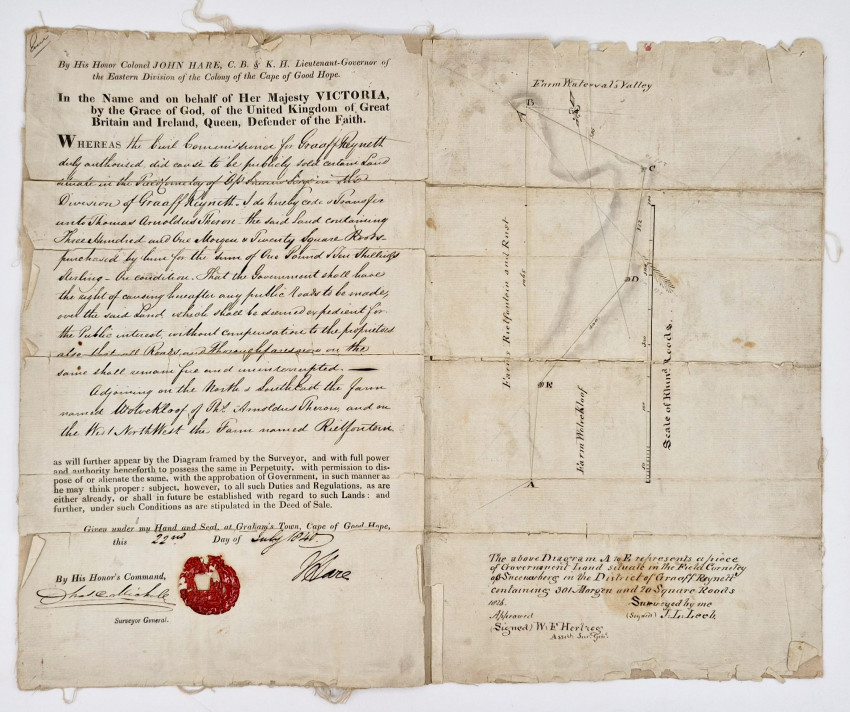 By His Honor Colonel JOHN HARE, C. B. & K. H. Lieutenant-Governor of
the Eastern Division of the Colony of the Cape of Good Hope.
In the Name and on behalf of Her Majesty VICTORIA,
by the Grace of God, of the United Kingdom of Great
Britain and Ireland, Queen, Defender of the Faith.
WHEREAS the Civil Commissioner for Graaff Reyneth
duly authorised, did cause to be publicly sold certain Land
situate in the Field Cornetcy of Op Sneeuwberg in the
Division of Graaff Reynett – I do hereby cede & Transfer
unto Thomas Arnoldus Theron – the said Land containing
Three Hundred and One Morgen & Twenty Square Roods –
purchased by him for the Sum of One Pound & Ten Shillings
Sterling – On condition. That the Government shall have
the right of causing hereafter any public Roads to be made
over the said Land, which shall be deemed expedient for
the Public interest, without compensation to the proprietor
also that all Roads, and Thoroughfares now on the
same shall remain free and uninterrupted. —
Adjoining on the North & South East the farm
named Wolvekloof of Ths. Arnoldus Theron, and on
the West North West the Farm named Rietfontein
as will further appear by the Diagram framed by the Surveyor, and with full power
and authority henceforth to possess the same in Perpetuity, with permission to dis-
pose of or alienate the same, with the approbation of Government, in such manner as
he may think proper: subject, however, to all such Duties and Regulations, as are
either already, or shall in future be established with regard to such Lands: and
further, under such Conditions as are stipulated in the Deed of Sale.
Given under my Hand and Seal, at Graham's Town, Cape of Good Hope,
this 22nd Day of July 1840.
By His Honor's Command,
J Hare
Surveyor General.
Farm Waterval's Valley
B
C
D
E
A
Farm Rietfontein and Rust
Farm Wolvekloof
Scale of Rhind. Roods.
The above Diagram A to E represents a piece
of Government Land situate in the Field Cornetcy
op Sneeuwberg in the District of Graaff Reynett
containing 301 Morgen and 20 Square Roods
Surveyed by me
Approved
(Signed) J. L. Leeb
(Signed) W. F. Hertzog
Assist Surr Genl.